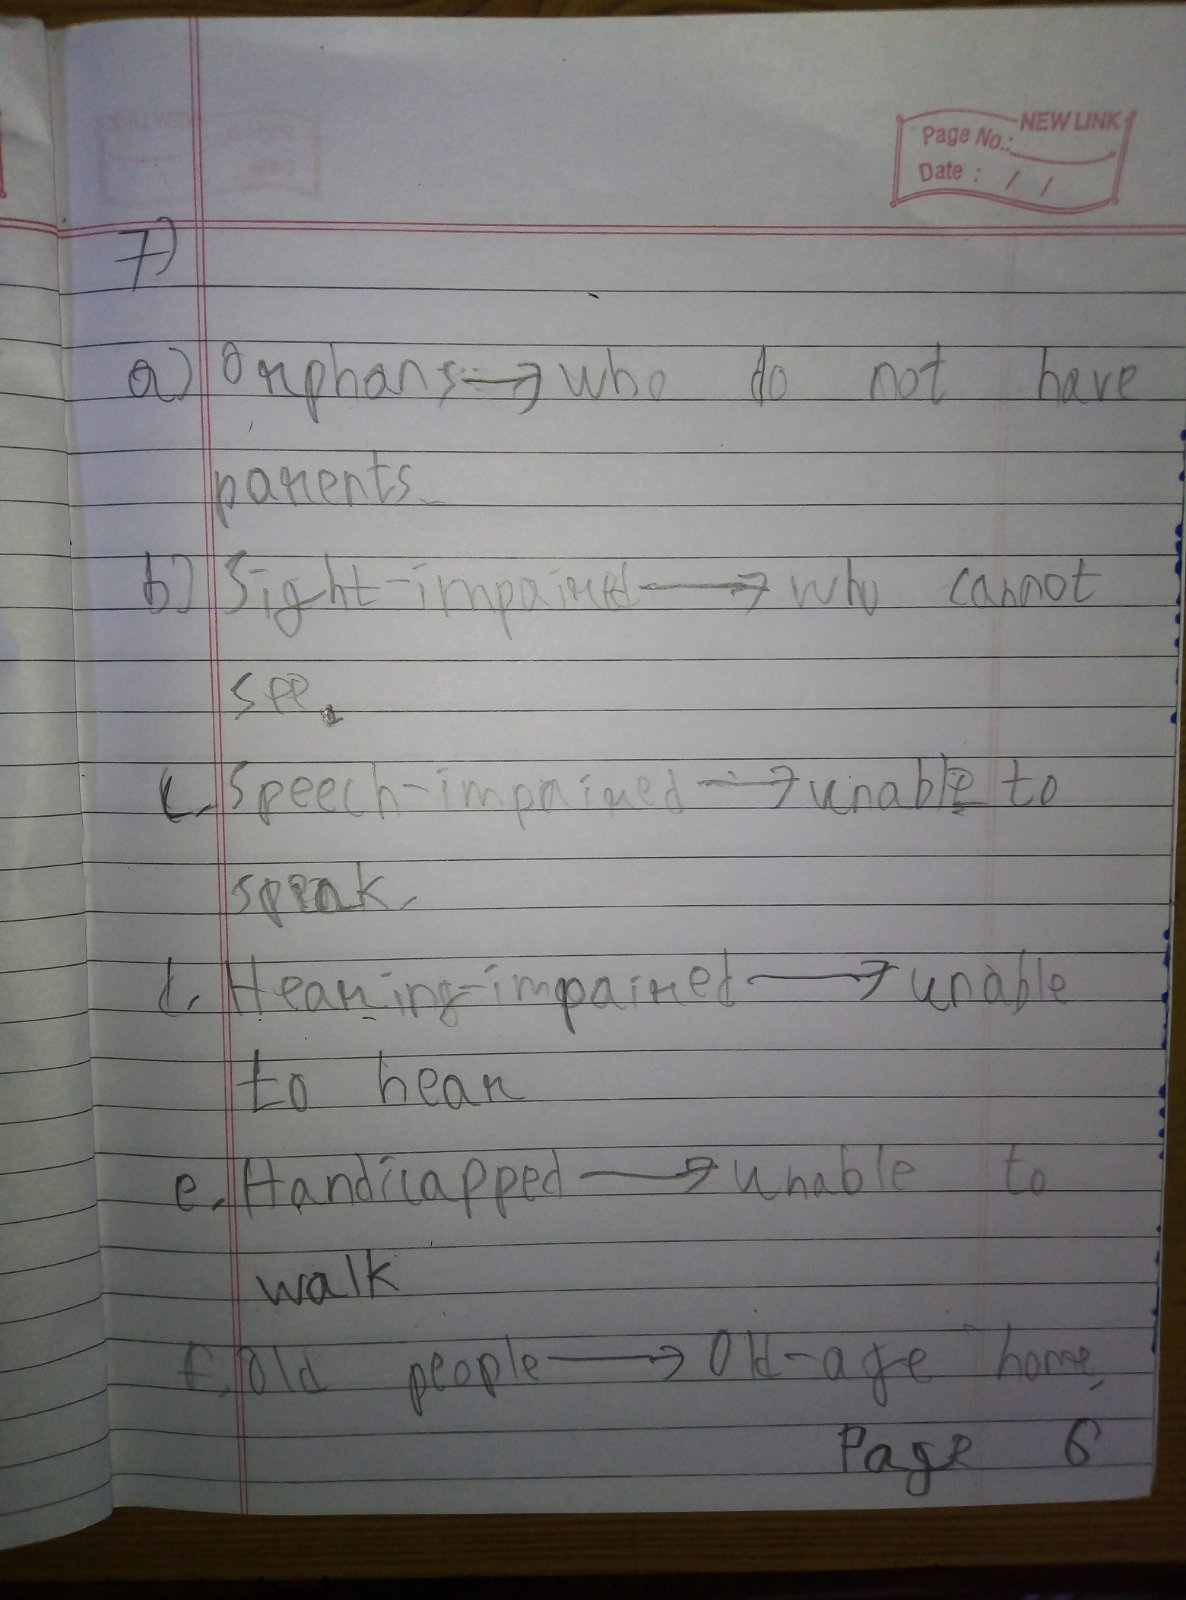 NEW LINK
Page No.:
Date : / /
7)
a) Orphans → who do not have
parents.
b) Sight-impaired → who cannot
see.
c. Speech-impaired → unable to
speak.
d. Hearing-impaired → unable
to hear
e. Handicapped → unable to
walk
f. Old people → Old-age home.
Page 6